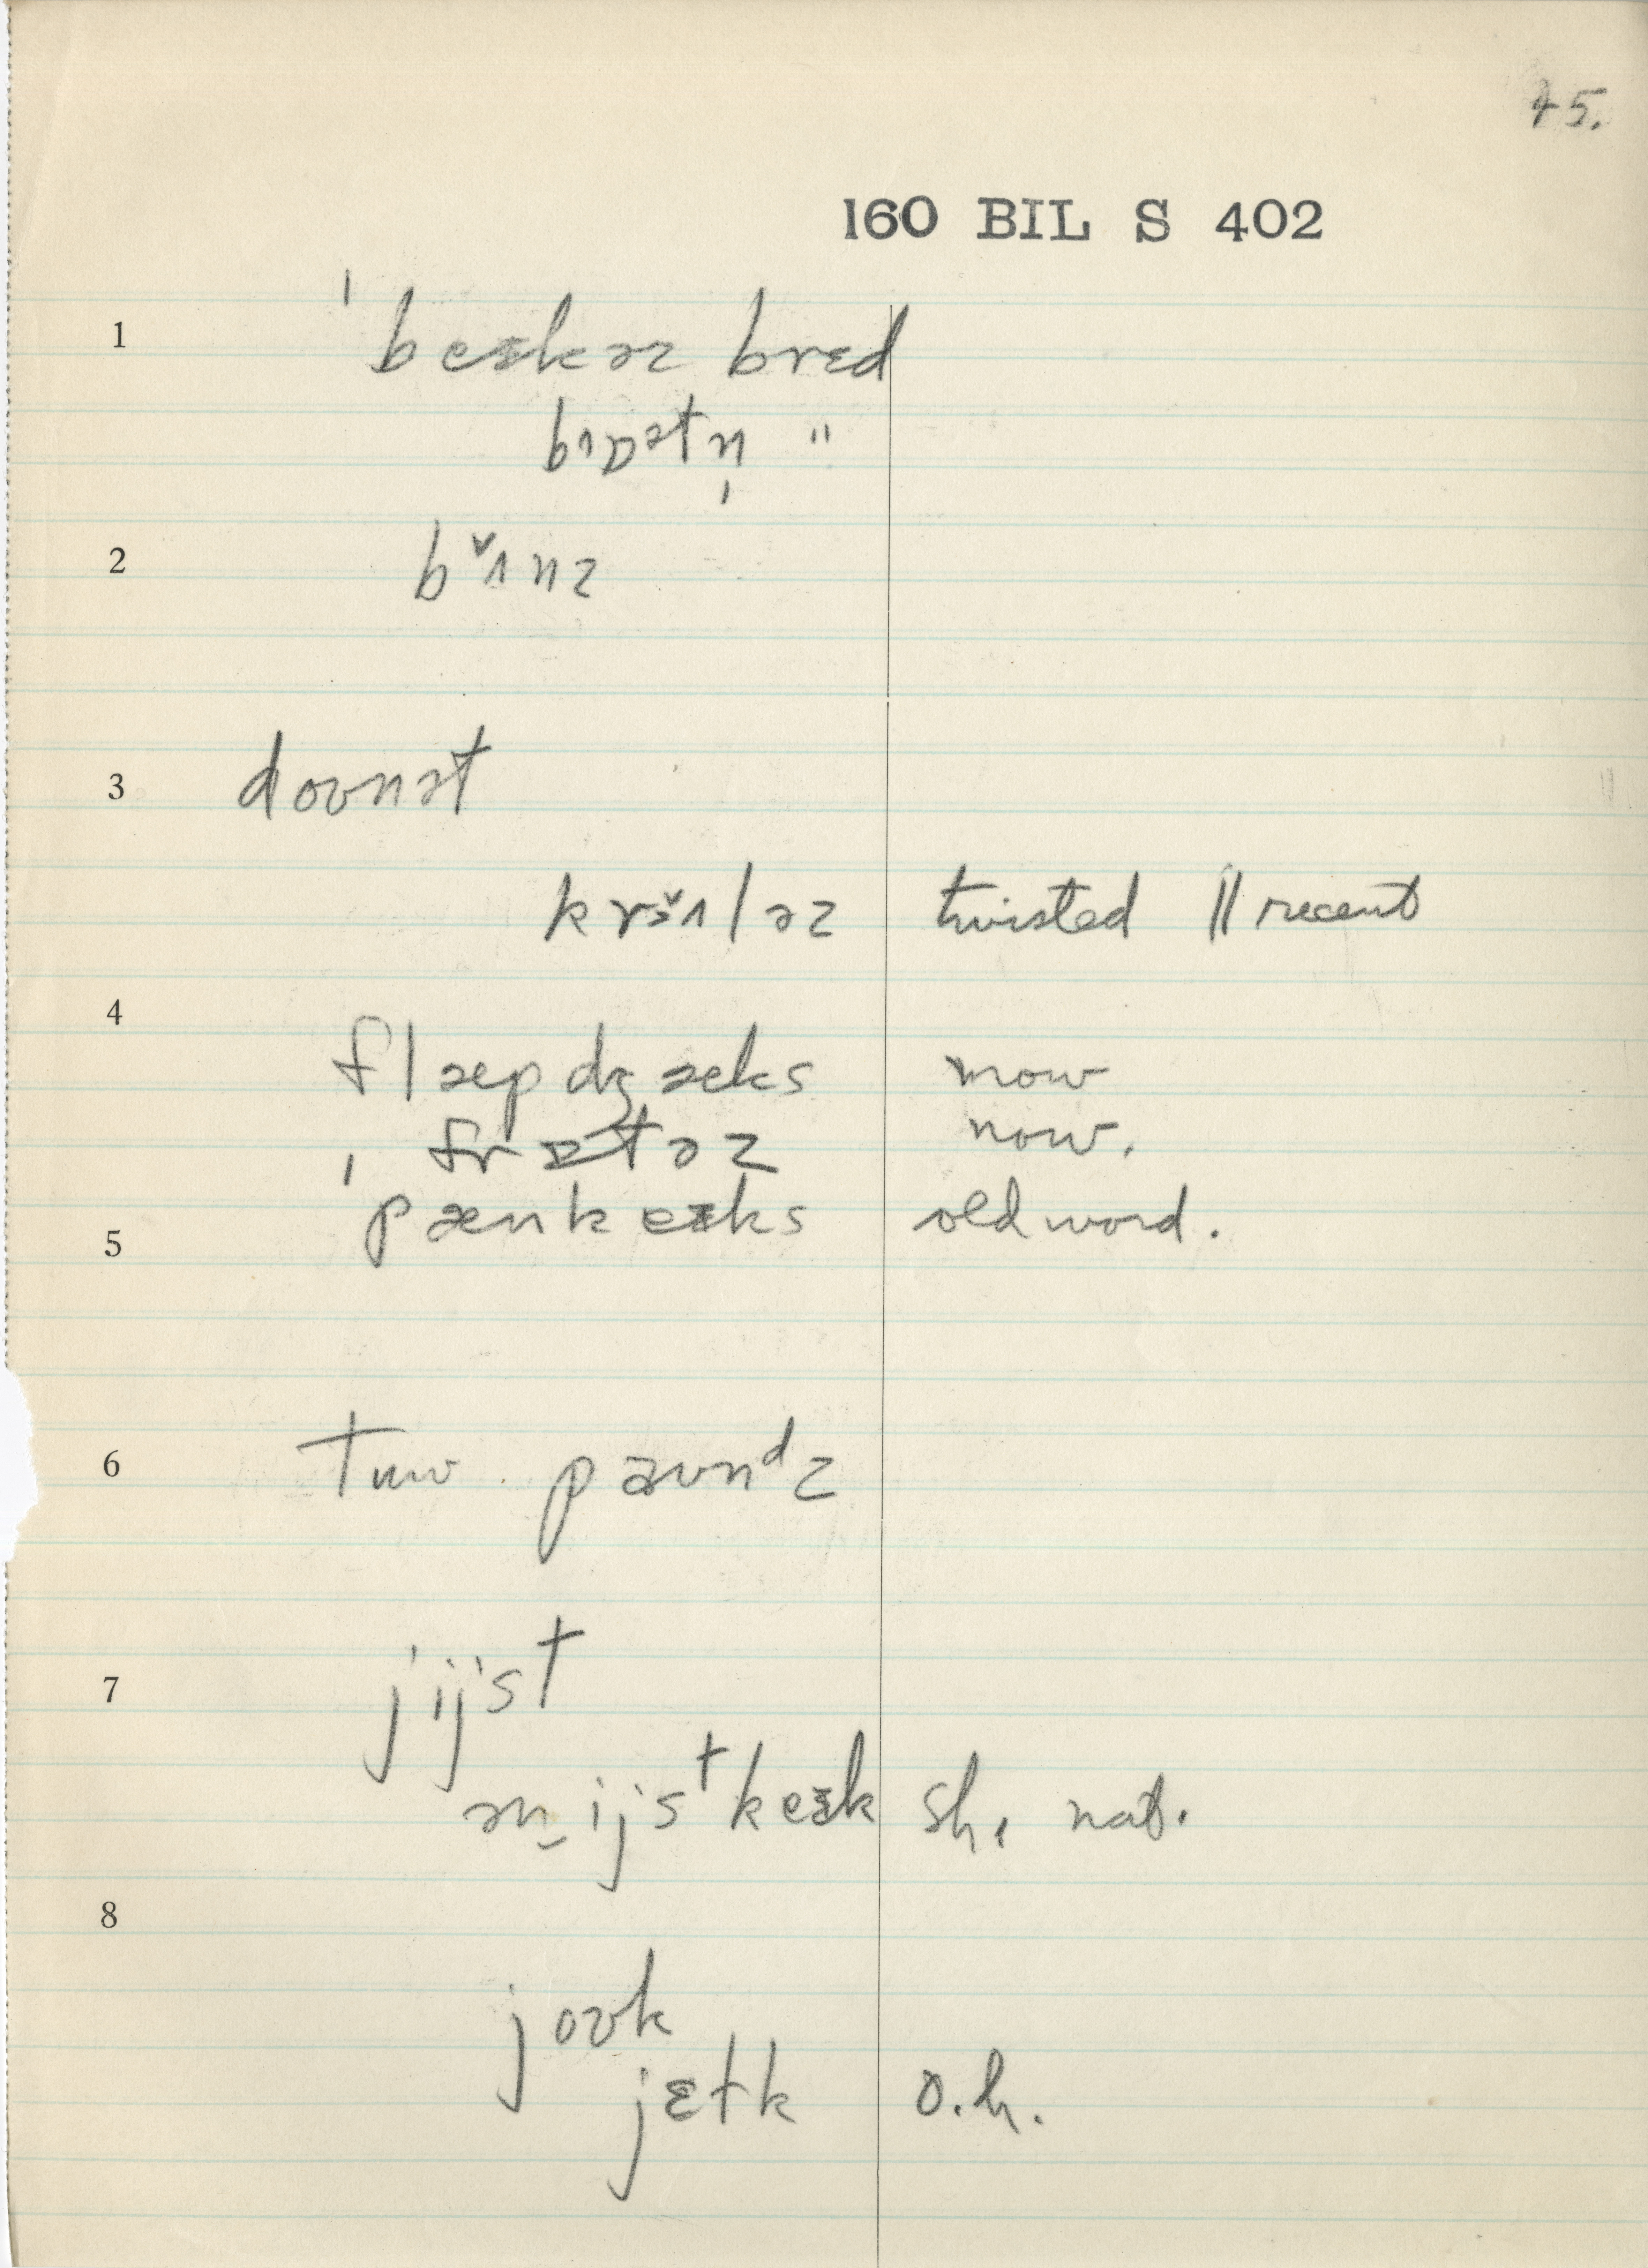 45.
160 BIL S 402
1 ˈbeɪkəz brɛd
bɪɒətn̩ "
2 b ɪ̌nz
3 doʊnət
krɪ̌ləz twisted || recent
4
flæpdʒæks now
ˌfrɪtəz now.
5 ˈpænkeɪks old word.
6 tuw paʊnᵈz
7 jijst
ən ijsᵗkeɪk sh. nat.
8
joʊk
jɛtk o.h.